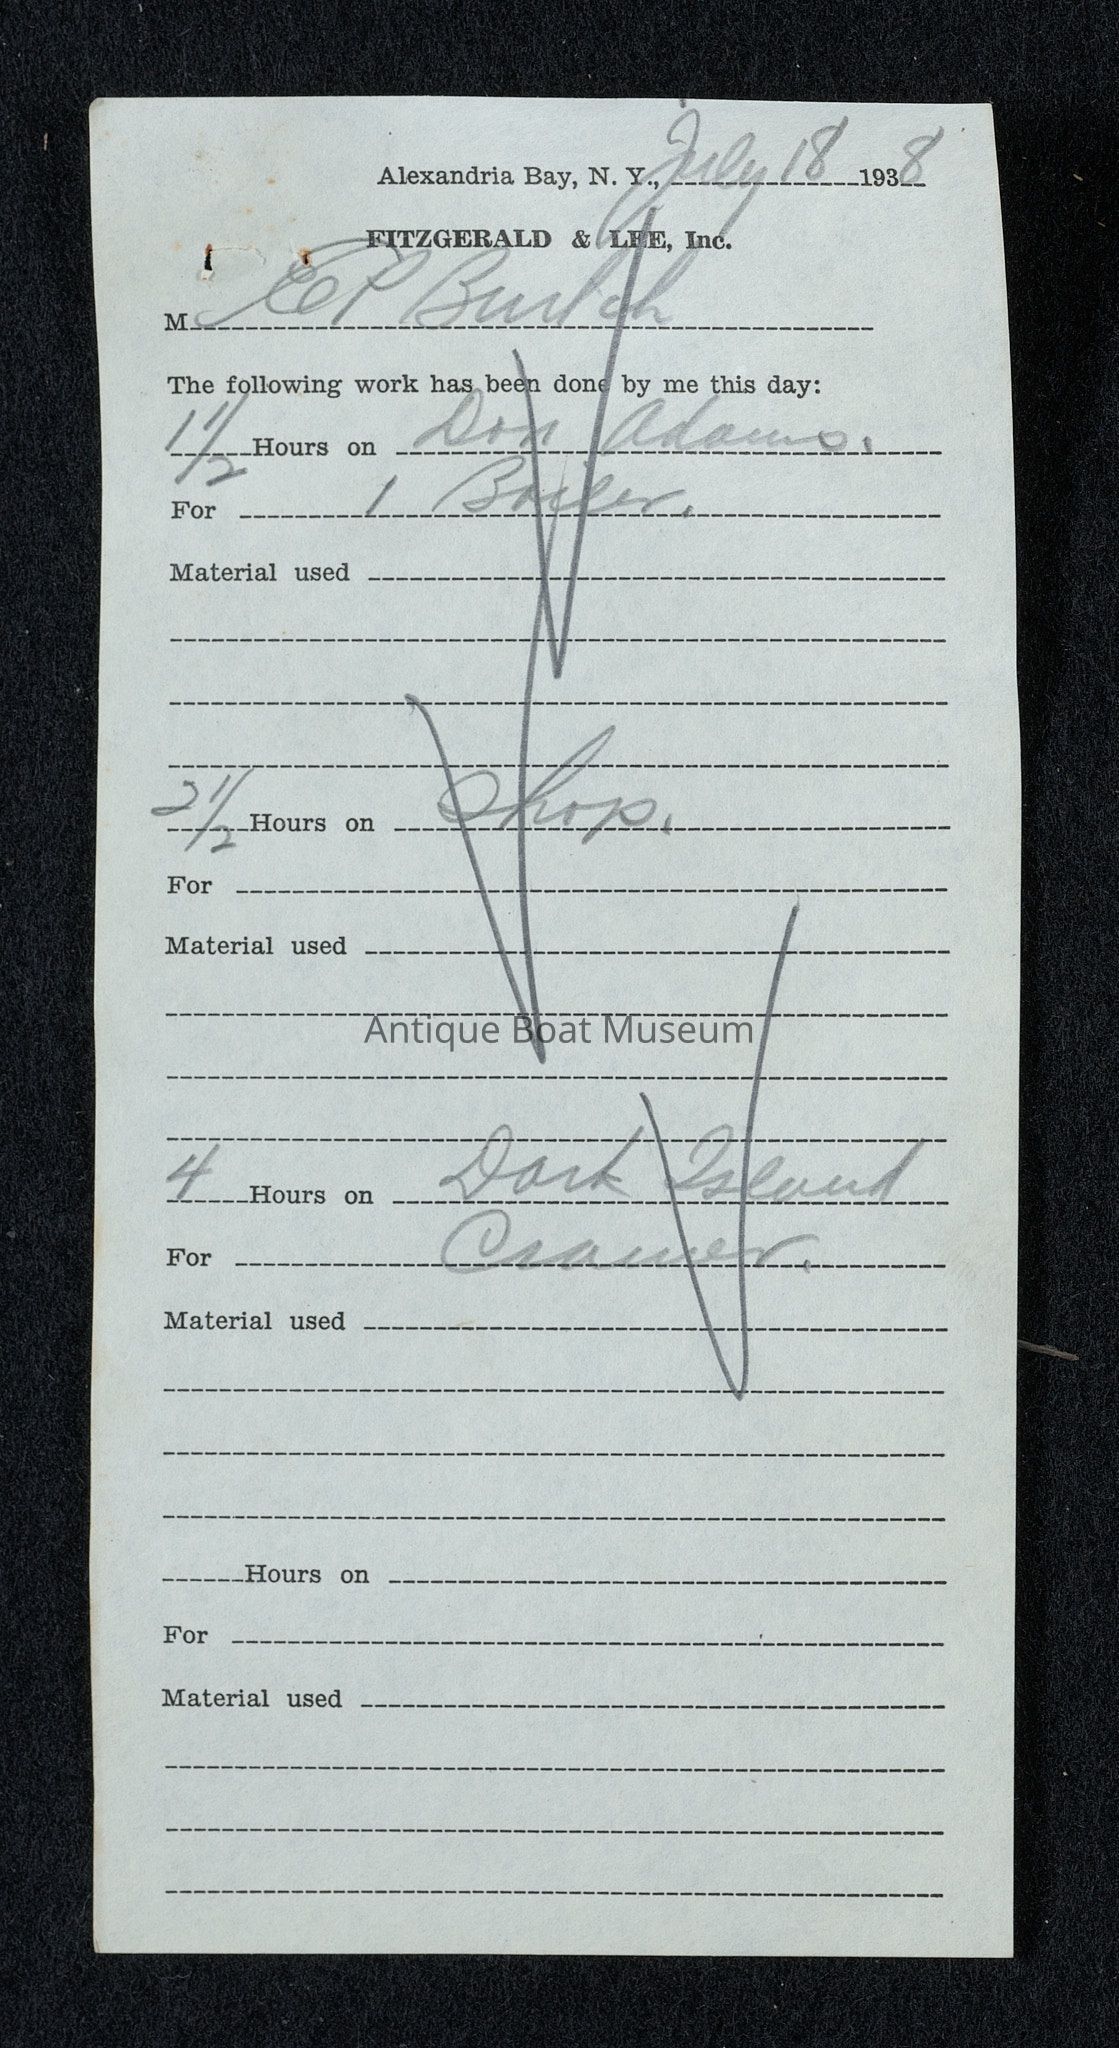 Alexandria Bay, N. Y., July 18 1938
FITZGERALD & LEE, Inc.
M E P Burtch
The following work has been done by me this day:
1 1/2 Hours on Don Adams.
For 1 Boiler.
Material used
2 1/2 Hours on Shop.
For
Material used
Antique Boat Museum
4 Hours on Dark Island
For Cramer.
Material used
Hours on
For
Material used